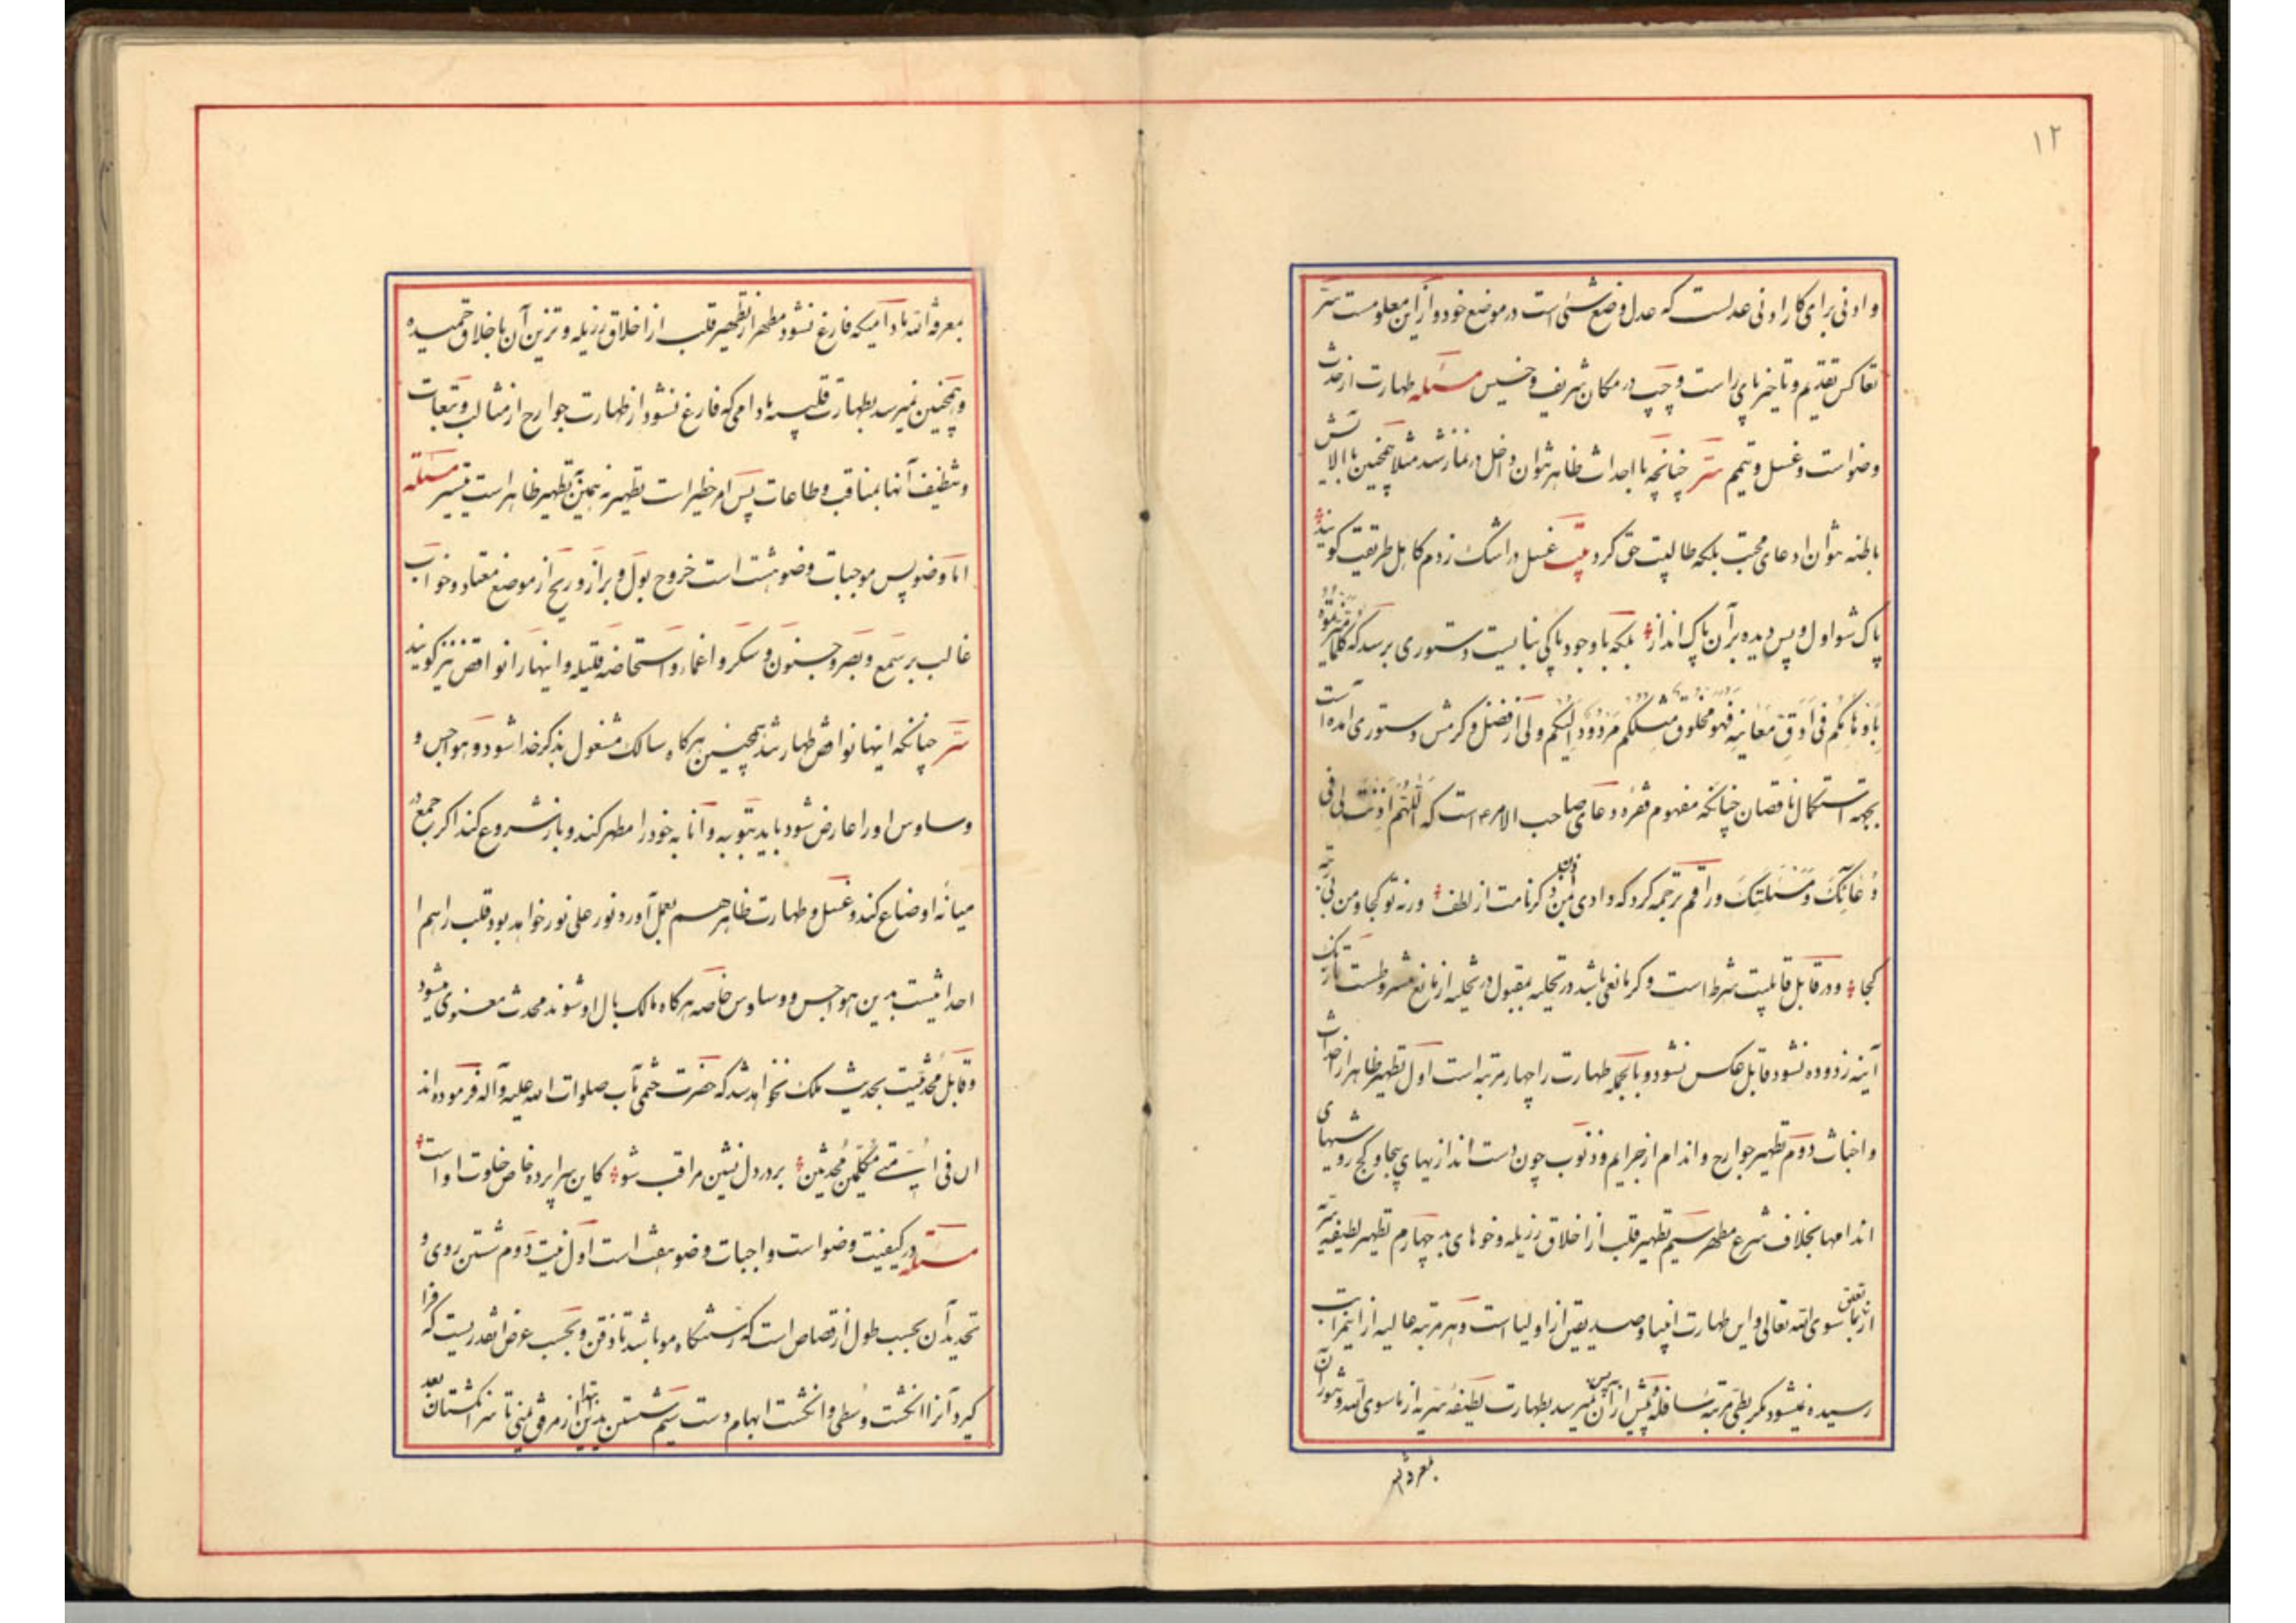 ۱۲
و ادنی برای کار ادنی عدلست که عدل وضع شئ است در موضع خود و از این معلومست سرّ
تعاکس تقدیم و تاخیر پای راست و چپ در مکان شریف و خسیس مسئله طهارت از حدث
وضو است و غسل و تیمم سرّ چنانچه با احداث ظاهر نتوان داخل در نماز شد مثلا همچنین با الایش
باطنه نتوان ادعای محبت بلکه طالبیت حق کرد بیت غسل در اشک زدم کاهل طریقت کویند
پاک شو اول و پس دیده بر آن پاک انداز بلکه با وجود پاکی نبایست دستوری برسد که کلما میزتموه
باوهامکم فی ادق معانیه فهو مخلوق مثلکم مردود الیکم ولی از فضل و کرمش دستوری آمده است
بجهه استکمال ناقصان چنانکه مفهوم فقره دعای صاحب الامر ع است که اللهم اذنت لی فی
دعائک و مسئلتک و راقم ترجمه کرد که دادی اذن ذکر نامت از لطف ورنه تو کجا و من بی‌ته
کجا و در قابل قابلیت شرط است و کر مانعی باشد در تحلیه بقبول در تخلیه از مانع مشروطست تا زنک
آینه زدوده نشود قابل عکس نشود و بالجمله طهارت را چهار مرتبه است اول تطهیر ظاهر از احداث
و اخباث دوم تطهیر جوارح و اندام از جرایم و ذنوب چون دست اندازیهای بیجا و کج رویشهای
اندامها بخلاف شرع مطهر سیم تطهیر قلب از اخلاق رزیله و خوهای بد چهارم تطهیر لطیفه سریه
از تعلق بما سوی الله تعالی و این طهارت انبیا و صدیقین از اولیا است و هر مرتبه عالیه از این مراتب
رسیده نمیشود مکر بطی مرتبه سافله پیش از آن پس نمیرسد بطهارت لطیفه سریه از ما سوی الله و تنور آن
بمعرفة الله
بمعرفة الله مادامیکه فارغ نشود مطهر از تطهیر قلب از اخلاق رزیله و تزین آن باخلاق حمیده
و همچنین نمیرسد بطهارت قلبیه مادامی که فارغ نشود از طهارت جوارح از مثالب و تبعات
و تنظیف آنها بمناقب و طاعات پس امر خطیر است تطهیر نه همین تطهیر ظاهر است میسر مسئله
اما وضو پس موجبات وضو هشت است خروج بول و براز و ریح از موضع معتاد و خواب
غالب بر سمع و بصر و جنون و سکر و اغماء و استحاضه قلیله و اینها را نواقض نیز کویند
سرّ چنانکه اینها نواقض طهارتند همچنین هرکاه سالک مشغول بذکر خدا شود و هواجس و
وساوس او را عارض شود باید بتوبه و انابه خود را مطهر کند و باز شروع کند اکر جمع در
میانه اوضاع کند و غسل و طهارت ظاهر هم بعمل آورد نور علی نور خواهد بود قلب را هم
احداثیست بدین هواجس و وساوس خاصه هرکاه مالک بال او شوند محدث معنوی میشود
و قابل محدثیت بحدیث ملک نخواهد شد که حضرت ختمی مآب صلوات الله علیه و آله فرموده‌اند
ان فی امتی مکلمین محدثین بر در دل نشین مراقب شو کاین سراپرده خاص خلوت او است
مسئله در کیفیت وضو است واجبات وضو هفت است اول نیت دوم شستن روی و
تحدید آن بحسب طول از قصاص است که رستنگاه مو باشد تا ذقن و بحسب عرض بقدریست که فرا
کیرد آنرا انکشت وسطی و انکشت ابهام دست سیم شستن یدین ابتدا از مرفق یمنی تا سر انکشتان بعد